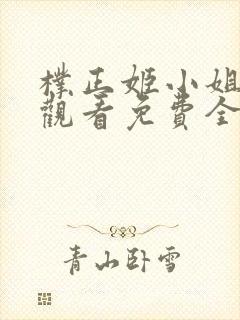 樸正姬小姐
觀看免費全
青山臥雪